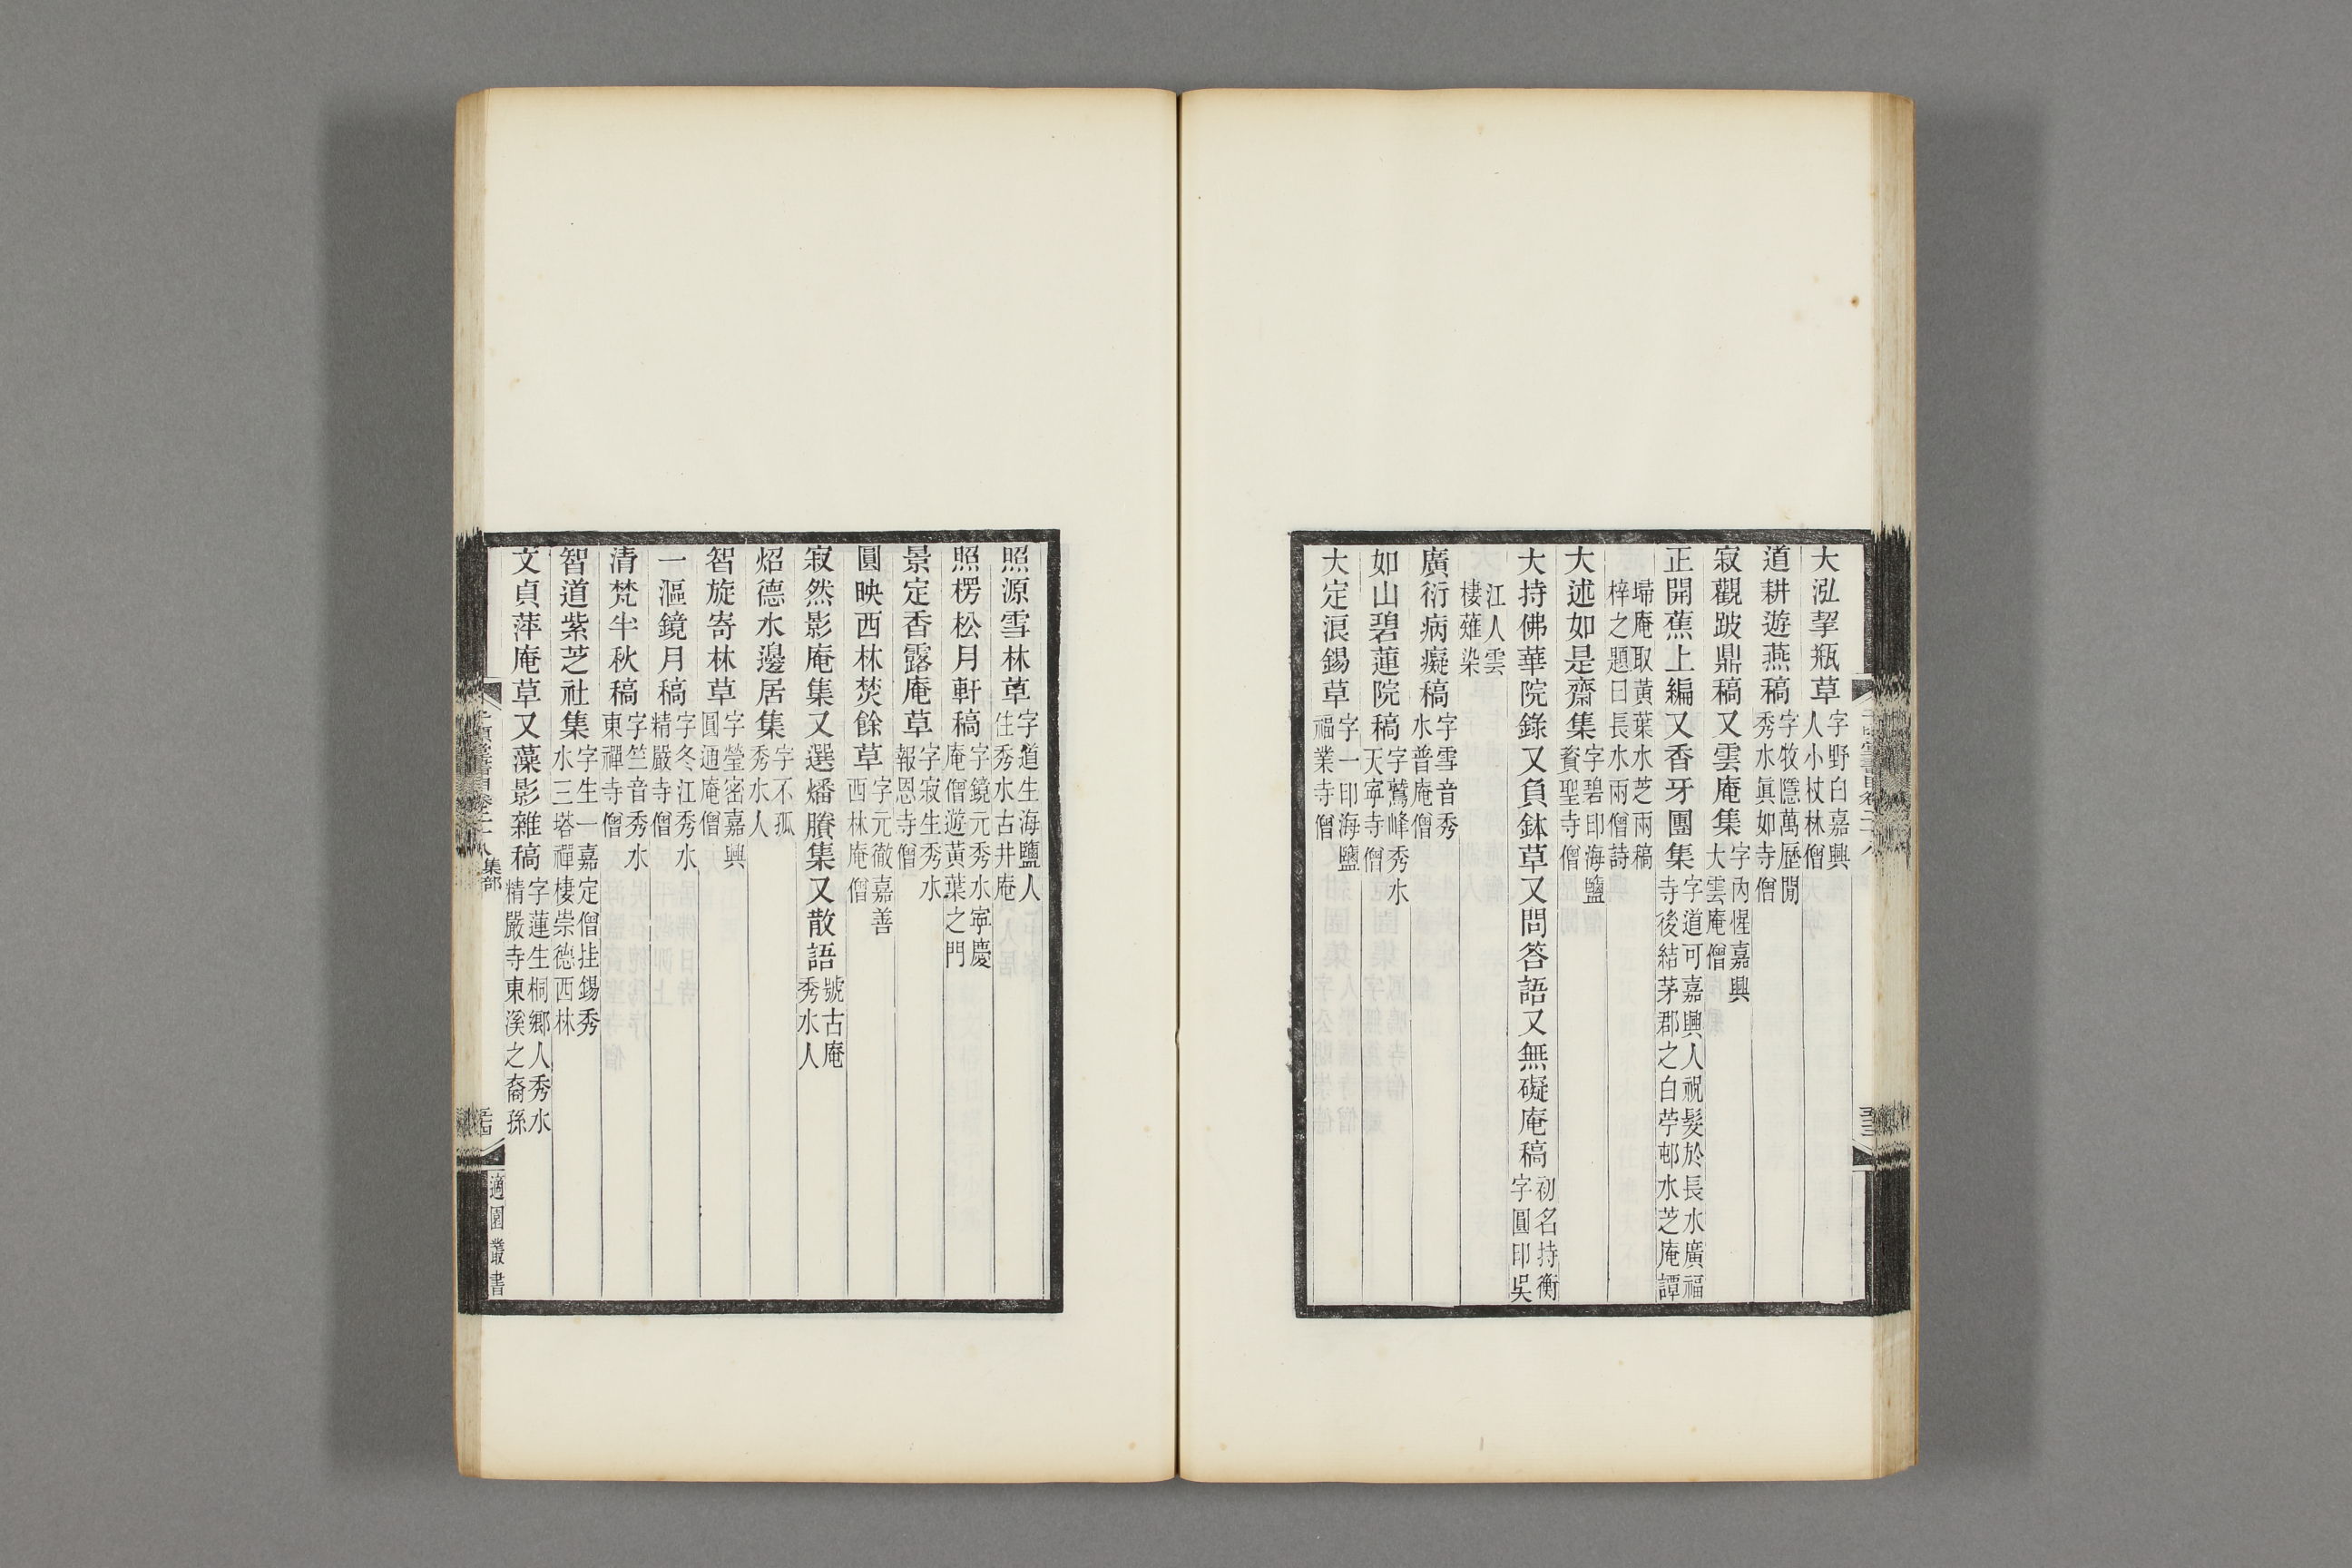 大泓挈瓶草字野臼嘉興人小杖林僧
道耕遊燕稿字牧隱萬歷閒秀水眞如寺僧
寂觀跛鼎稿又雲庵集字內惺嘉興大雲庵僧
正開蕉上編又香牙團集字道可嘉興人祝髮於長水廣福寺後結茅郡之白苧邨水芝庵譚
埽庵取黃葉水芝兩稿梓之題曰長水兩僧詩
大述如是齋集字碧印海鹽資聖寺僧
大持佛華院錄又負鉢草又問答語又無礙庵稿初名持衡字圓印吳
江人雲棲薙染
廣衍病癡稿字雪音秀水普庵僧
如山碧蓮院稿字鷲峰秀水天寧寺僧
大定浪錫草字一印海鹽福業寺僧
照源雪林草字道生海鹽人住秀水古井庵
照楞松月軒稿字鏡元秀水寧慶庵僧遊黃葉之門
景定香露庵草字寂生秀水報恩寺僧
圓映西林焚餘草字元徹嘉善西林庵僧
寂然影庵集又選燔賸集又散語號古庵秀水人
炤德水邊居集字不孤秀水人
智旋寄林草字瑩密嘉興圓通庵僧
一漚鏡月稿字冬江秀水精嚴寺僧
清梵半秋稿字竺音秀水東禪寺僧
智道紫芝社集字生一嘉定僧挂錫秀水三塔禪棲崇德西林
文貞萍庵草又藻影雜稿字蓮生桐鄉人秀水精嚴寺東溪之裔孫
集部
適園叢書